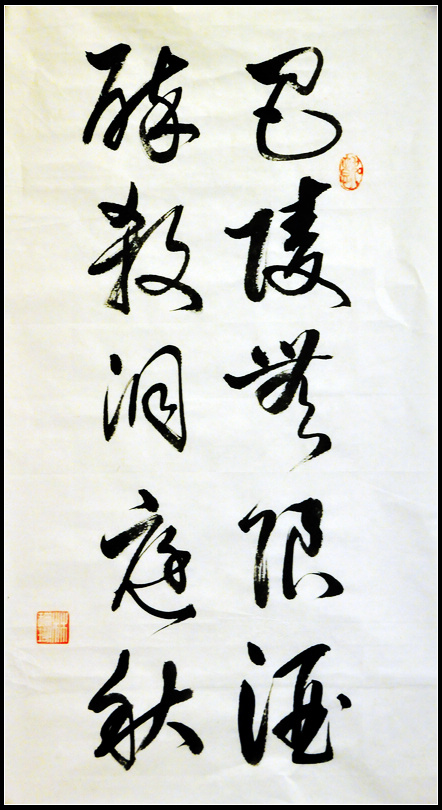 巴陵無限酒
醉殺洞庭秋